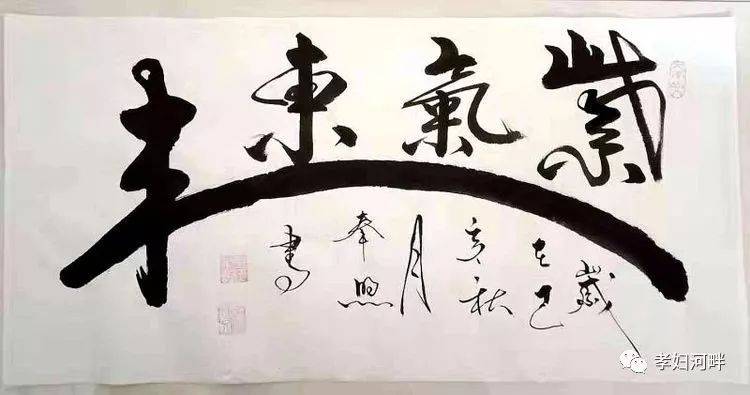 紫氣東来
歲在己
亥秋
月
奉照
書
孝妇河畔